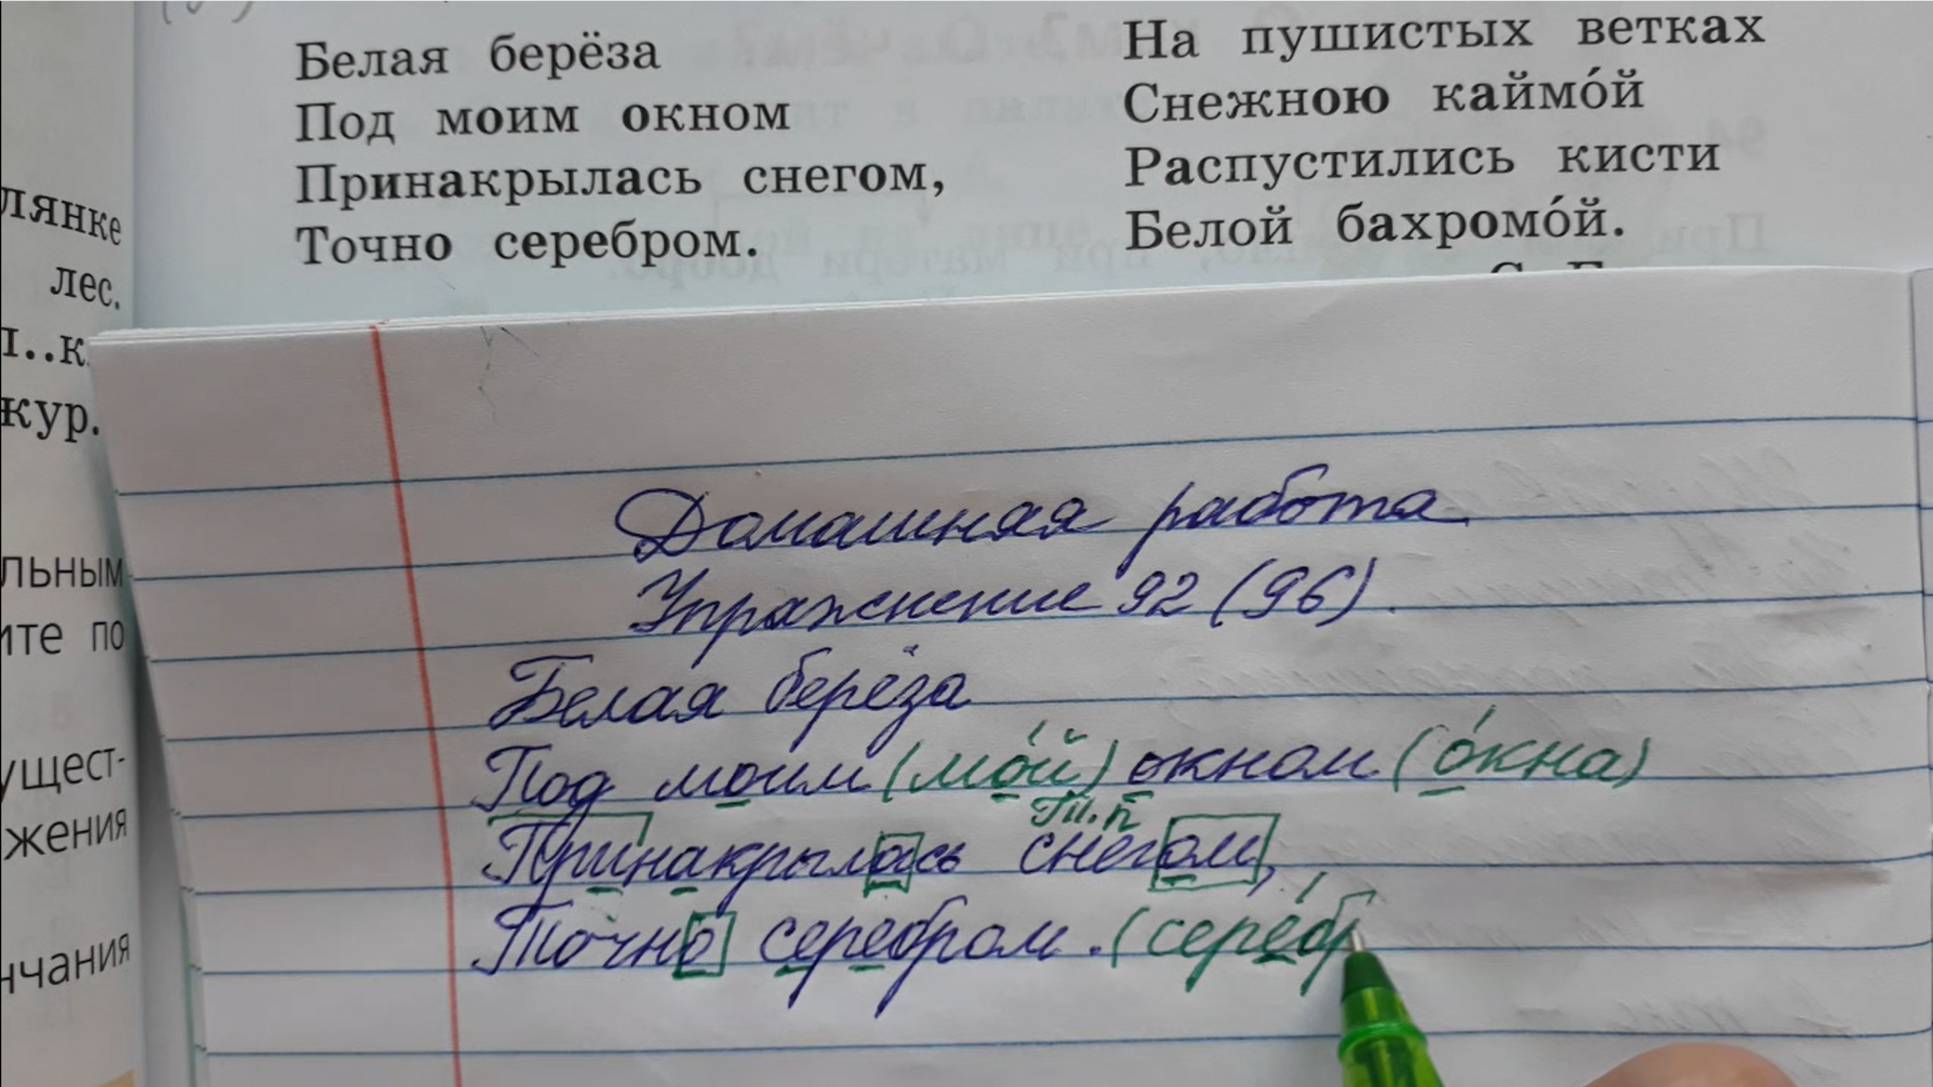 Белая берёза
Под моим окном
Принакрылась снегом,
Точно серебром.
На пушистых ветках
Снежною каймо́й
Распустились кисти
Белой бахромо́й.
лянке
лес.
..к
жур.
льным
ите по
ущест-
жения
нчания
Домашняя работа
Упражнение 92 (96).
Белая берёза
Под моим (мо́й) окном (о́кна)
Т.п.
Принакрылась снегом,
Точно серебром. (сере́бр